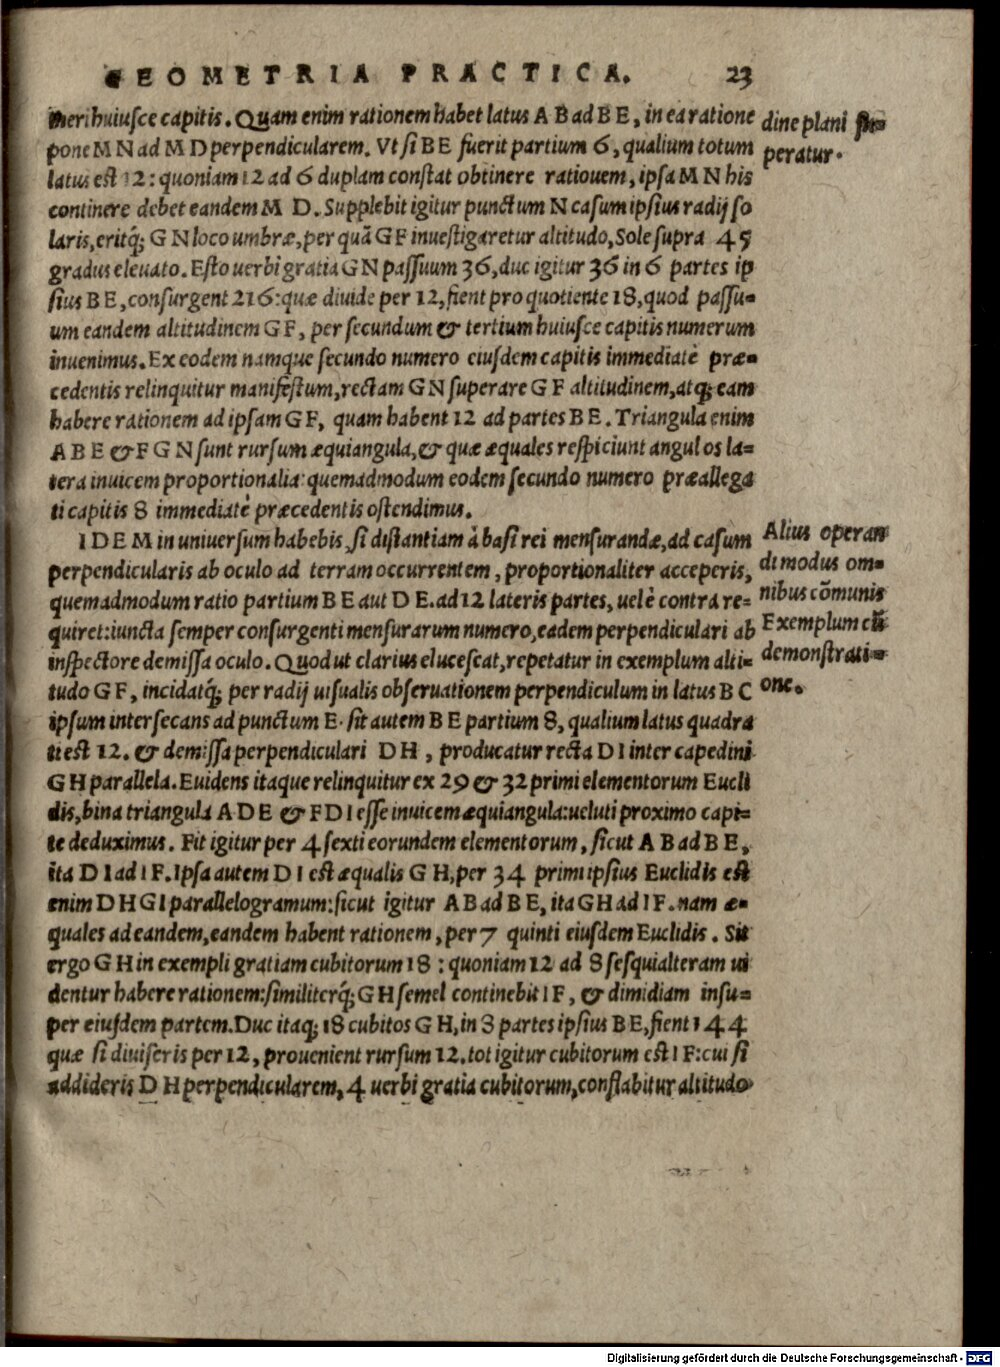 GEOMETRIA PRACTICA. 23
meri huiusce capitis. Quam enim rationem habet latus A B ad B E, in ea ratione
pone M N ad M D perpendicularem. Vt si B E fuerit partium 6, qualium totum
latus est 12: quoniam 12 ad 6 duplam constat obtinere ratiouem, ipsa M N bis
continere debet eandem M D. Supplebit igitur punctum N casum ipsius radij so
laris, eritq; G N loco umbræ, per quā G F inuestigaretur altitudo, Sole supra 45
gradus eleuato. Esto uerbi gratia G N passuum 36, duc igitur 36 in 6 partes ip
sius B E, consurgent 216: quæ diuide per 12, fient pro quotiente 18, quod passu-
um eandem altitudinem G F, per secundum & tertium huiusce capitis numerum
inuenimus. Ex eodem namque secundo numero eiusdem capitis immediatè præ-
cedentis relinquitur manifestum, rectam G N superare G F altitudinem, atq; eam
habere rationem ad ipsam G F, quam habent 12 ad partes B E. Triangula enim
A B E & F G N sunt rursum æquiangula, & quæ æquales respiciunt angulos la-
tera inuicem proportionalia: quemadmodum eodem secundo numero præallega
ti capitis 8 immediatè præcedentis ostendimus.
I D E M in uniuersum habebis, si distantiam à basi rei mensurandæ, ad casum
perpendicularis ab oculo ad terram occurrentem, proportionaliter acceperis,
quemadmodum ratio partium B E aut D E. ad 12 lateris partes, uelè contra re-
quiret: iuncta semper consurgenti mensurarum numero, eadem perpendiculari ab
inspectore demissa oculo. Quod ut clarius elucescat, repetatur in exemplum alti-
tudo G F, incidatq; per radij uisualis obseruationem perpendiculum in latus B C
ipsum intersecans ad punctum E. sit autem B E partium 8, qualium latus quadra
ti est 12. & demissa perpendiculari D H, producatur recta D I intercapedini
G H parallela. Euidens itaque relinquitur ex 29 & 32 primi elementorum Eucli
dis, bina triangula A D E & F D I esse inuicem æquiangula: ueluti proximo capi-
te deduximus. Fit igitur per 4 sexti eorundem elementorum, sicut A B ad B E,
ita D I ad I F. Ipsa autem D I est æqualis G H, per 34 primi ipsius Euclidis est
enim D H G I parallelogramum: sicut igitur A B ad B E, ita G H ad I F. nam æ-
quales ad eandem, eandem habent rationem, per 7 quinti eiusdem Euclidis. Sit
ergo G H in exempli gratiam cubitorum 18: quoniam 12 ad 8 sesquialteram ui
dentur habere rationem: similiterq; G H semel continebit I F, & dimidiam insu-
per eiusdem partem. Duc itaq; 18 cubitos G H, in 8 partes ipsius B E, fient 144
quæ si diuiseris per 12, prouenient rursum 12. tot igitur cubitorum est I F: cui si
addideris D H perpendicularem, 4 uerbi gratia cubitorum, constabitur altitudo
dine plani
peratur.
Alius operan
di modus om-
nibus cōmunis
Exemplum cū
demonstrati-
one.
Digitalisierung gefördert durch die Deutsche Forschungsgemeinschaft - DFG